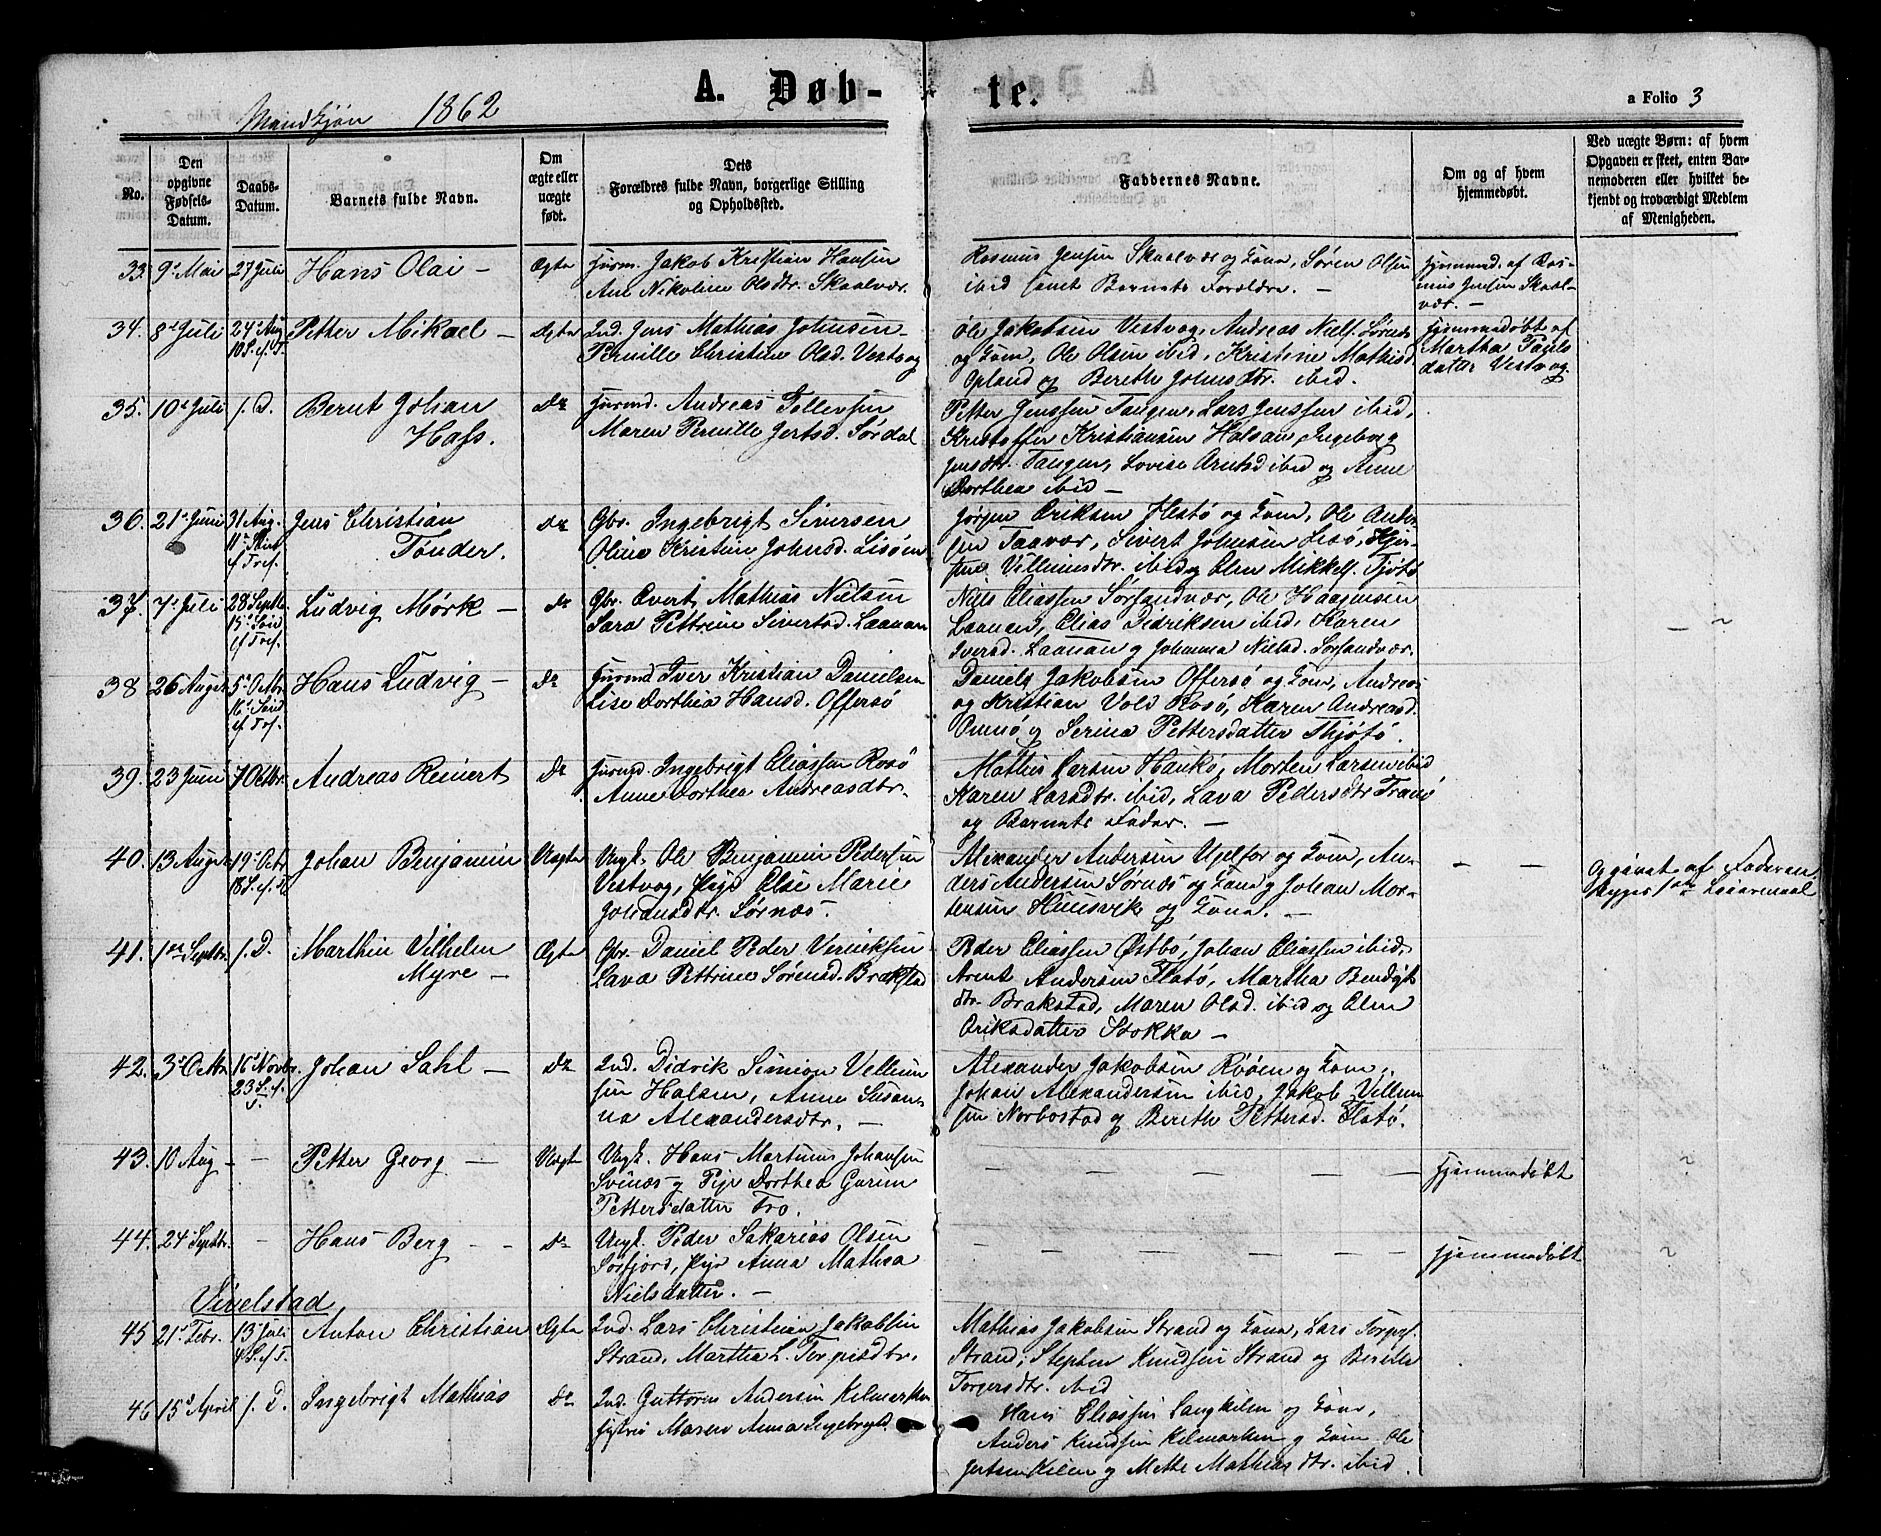 A. Døb-
te.
a Folio 3
Mandkjøn 1862
No.
Den
opgivne
Fødsels-
Datum.
Daabs-
Datum.
Barnets fulde Navn.
Om
ægte eller
uægte
født.
Dets
Forældres fulde Navn, borgerlige Stilling
og Opholdssted.
Faddernes Navne.
Om og af hvem
hjemmedøbt.
Ved uægte Børn: af hvem
Opgaven er skeet, enten Bar-
nemoderen eller hvilket be-
kjendt og troværdigt Medlem
af Menigheden.
33. 9. Mai 27 Juli Hans Olai - Ægte Huusm. Jakob Kristian Hansen
Ane Nikoline Olsdtr. Skaalvær.
Rasmus Jensen Skaalvær og Kone, Søren Olsen
ibid samt Barnets Forældre. -
Hjemmed. af Ras-
mus Jensen Skaal-
vær. -
34. 8de Juli 24. Aug.
10 S. e. T.
Petter Mikael - Ægte Ind. Jens Mathias Johnsen
Pernille Christine Olsd. Vestvog
Ole Jakobsen Vestvog, Andreas Niels. Sørnæs
og Kone, Ole Olsen ibid, Kristine Mathisd
Opland og Berethe Johnsdtr. ibid.
Hjemmedøbt af
Martha Pauls
datter Vestvog.
35. 10de Juli s. D. Bernt Johan
Hass.
Do Huusmd. Andreas Tollevsen
Maren Pernille Gertsd. Sørdal
Petter Jenssen Tangen, Lars Jenssen ibid,
Kristoffer Kristiansen Halsan, Ingeborg
Jensdtr. Tangen, Lovise Arntsd ibid og Anne
Dorthea ibid -
36. 21de Juni 31 Aug.
11te
e Tref.
Jens Christian
Tønder.
Do Gbr. Ingebrigt Sivertsen
Oline Kristine Johnsd. Lisøen
Jørgen Eriksen Flatø og Kone, Ole Ander-
sen Taavær, Sivert Johnsen Lisø,
Villumsdtr. ibid og Elen Mikkels. Tjøtø
37. 7de Juli 28 Septbr
15de Sønd
e Tref.
Ludvig Mørk - Do Gbr. Evert Mathias Nielsen
Sara Pettrine Sivertsd. Laanan
Niels Eliassen Sørsandvær, Ole Haagensen
Laanan, Elias Didriksen ibid, Karen
Iversd. Laanan og Johanna Nielsd. Sørsandvær.
38 26 August 5de Octbr
16de Sønd
e Tref.
Hans Ludvig - Do Huusmd Iver Kristian Danielsen
Lise Dorthea Hansd. Offersø
Daniel Jakobsen Offersø og Kone, Andreas
og Kristian Vold Rosø, Karen Andreasd.
og Serina Pettersdatter Thjøtø.
39. 23 Juni 7 Octbr. Andreas Reinert Do Huusmd. Ingebrigt Eliassen Rosø
Anne Dorthea Andreasdtr.
Mathis Larsen Haukø, Morten Larsen ibid
Karen Larsdtr. ibid, Lava Pedersdtr Tranø
og Barnets Fader. -
40. 13 August 19de Octr
18 S. e. T
Johan Benjamin Uægte Ungk. Ole Benjamin Pedersen
Vestvog, Pige Else Marie
Johansdtr. Sørnæs.
Alexander Andersen Ugelfor og Kone, An-
ders Andersen Sørnæs og Kone og Johan Mor-
tensen Hunsvik og Kone. -
- -
Opgivet af Faderen
Pigens 1ste Leiermaal
41. 1ste Septbr. s. D. Marthin Vilhelm
Myre -
Ægte Gbr. Daniel Peder Veriksen
Lava Pettrine Sørensd. Brakstad
Peder Eliassen Østbø, Johan Eliassen ibid,
Arent Andersen Flatø, Martha Bendigts
dtr. Brakstad, Maren Olsd. ibid og Elen
Eriksdatter Stokka -
42. 3de Octbr 16de Novbr.
23 S. e.
T.
Johan Sahl - Do Ind. Didrik Simion Vellum
sen Halsen, Anne Susan-
na Alexandersdtr. -
Alexander Jakobsen Røøen og Kone,
Johan Alexandersen ibid, Jakob Villum
sen Norbostad og Berethe Pettersd. Flatø.
43. 10 Aug - - Petter Georg - Uægte Ungk. Hans Martinus Johansen
Svinæs og Pige Dorthea Gurine
Pettersdatter Tro.
- - - - - - - Hjemmedøbt
44. 24 Septbr. - Hans Berg - - Do Ungk. Peder Sakarias Olsen
Sørfjord, Pige Anna Mathea
Nielsdatter. -
- - - - - - - Hjemmedøbt
Vivelstad
45 21de Febr. 13de Juli
4 S. e. T.
Anton Christian Ægte Ind. Lars Christian Jakobsen
Strand, Martha L. Torpisdtr.
Mathias Jakobsen Strand og Kone, Lars Torpes.
Strand, Stephen Knudsen Strand og Berethe
Torgersdtr. ibid
46 15de April s. D. Ingebrigt Mathias Do Ind. Guttorm Andersen Kilmarken
Maren Anna Ingebrgtd.
Hans Eliassen Langkilen og Kone,
Anders Knudsen Kilmarken og Kone Ole
Jertsen Kilen og Mette Mathiasdtr. ibid.